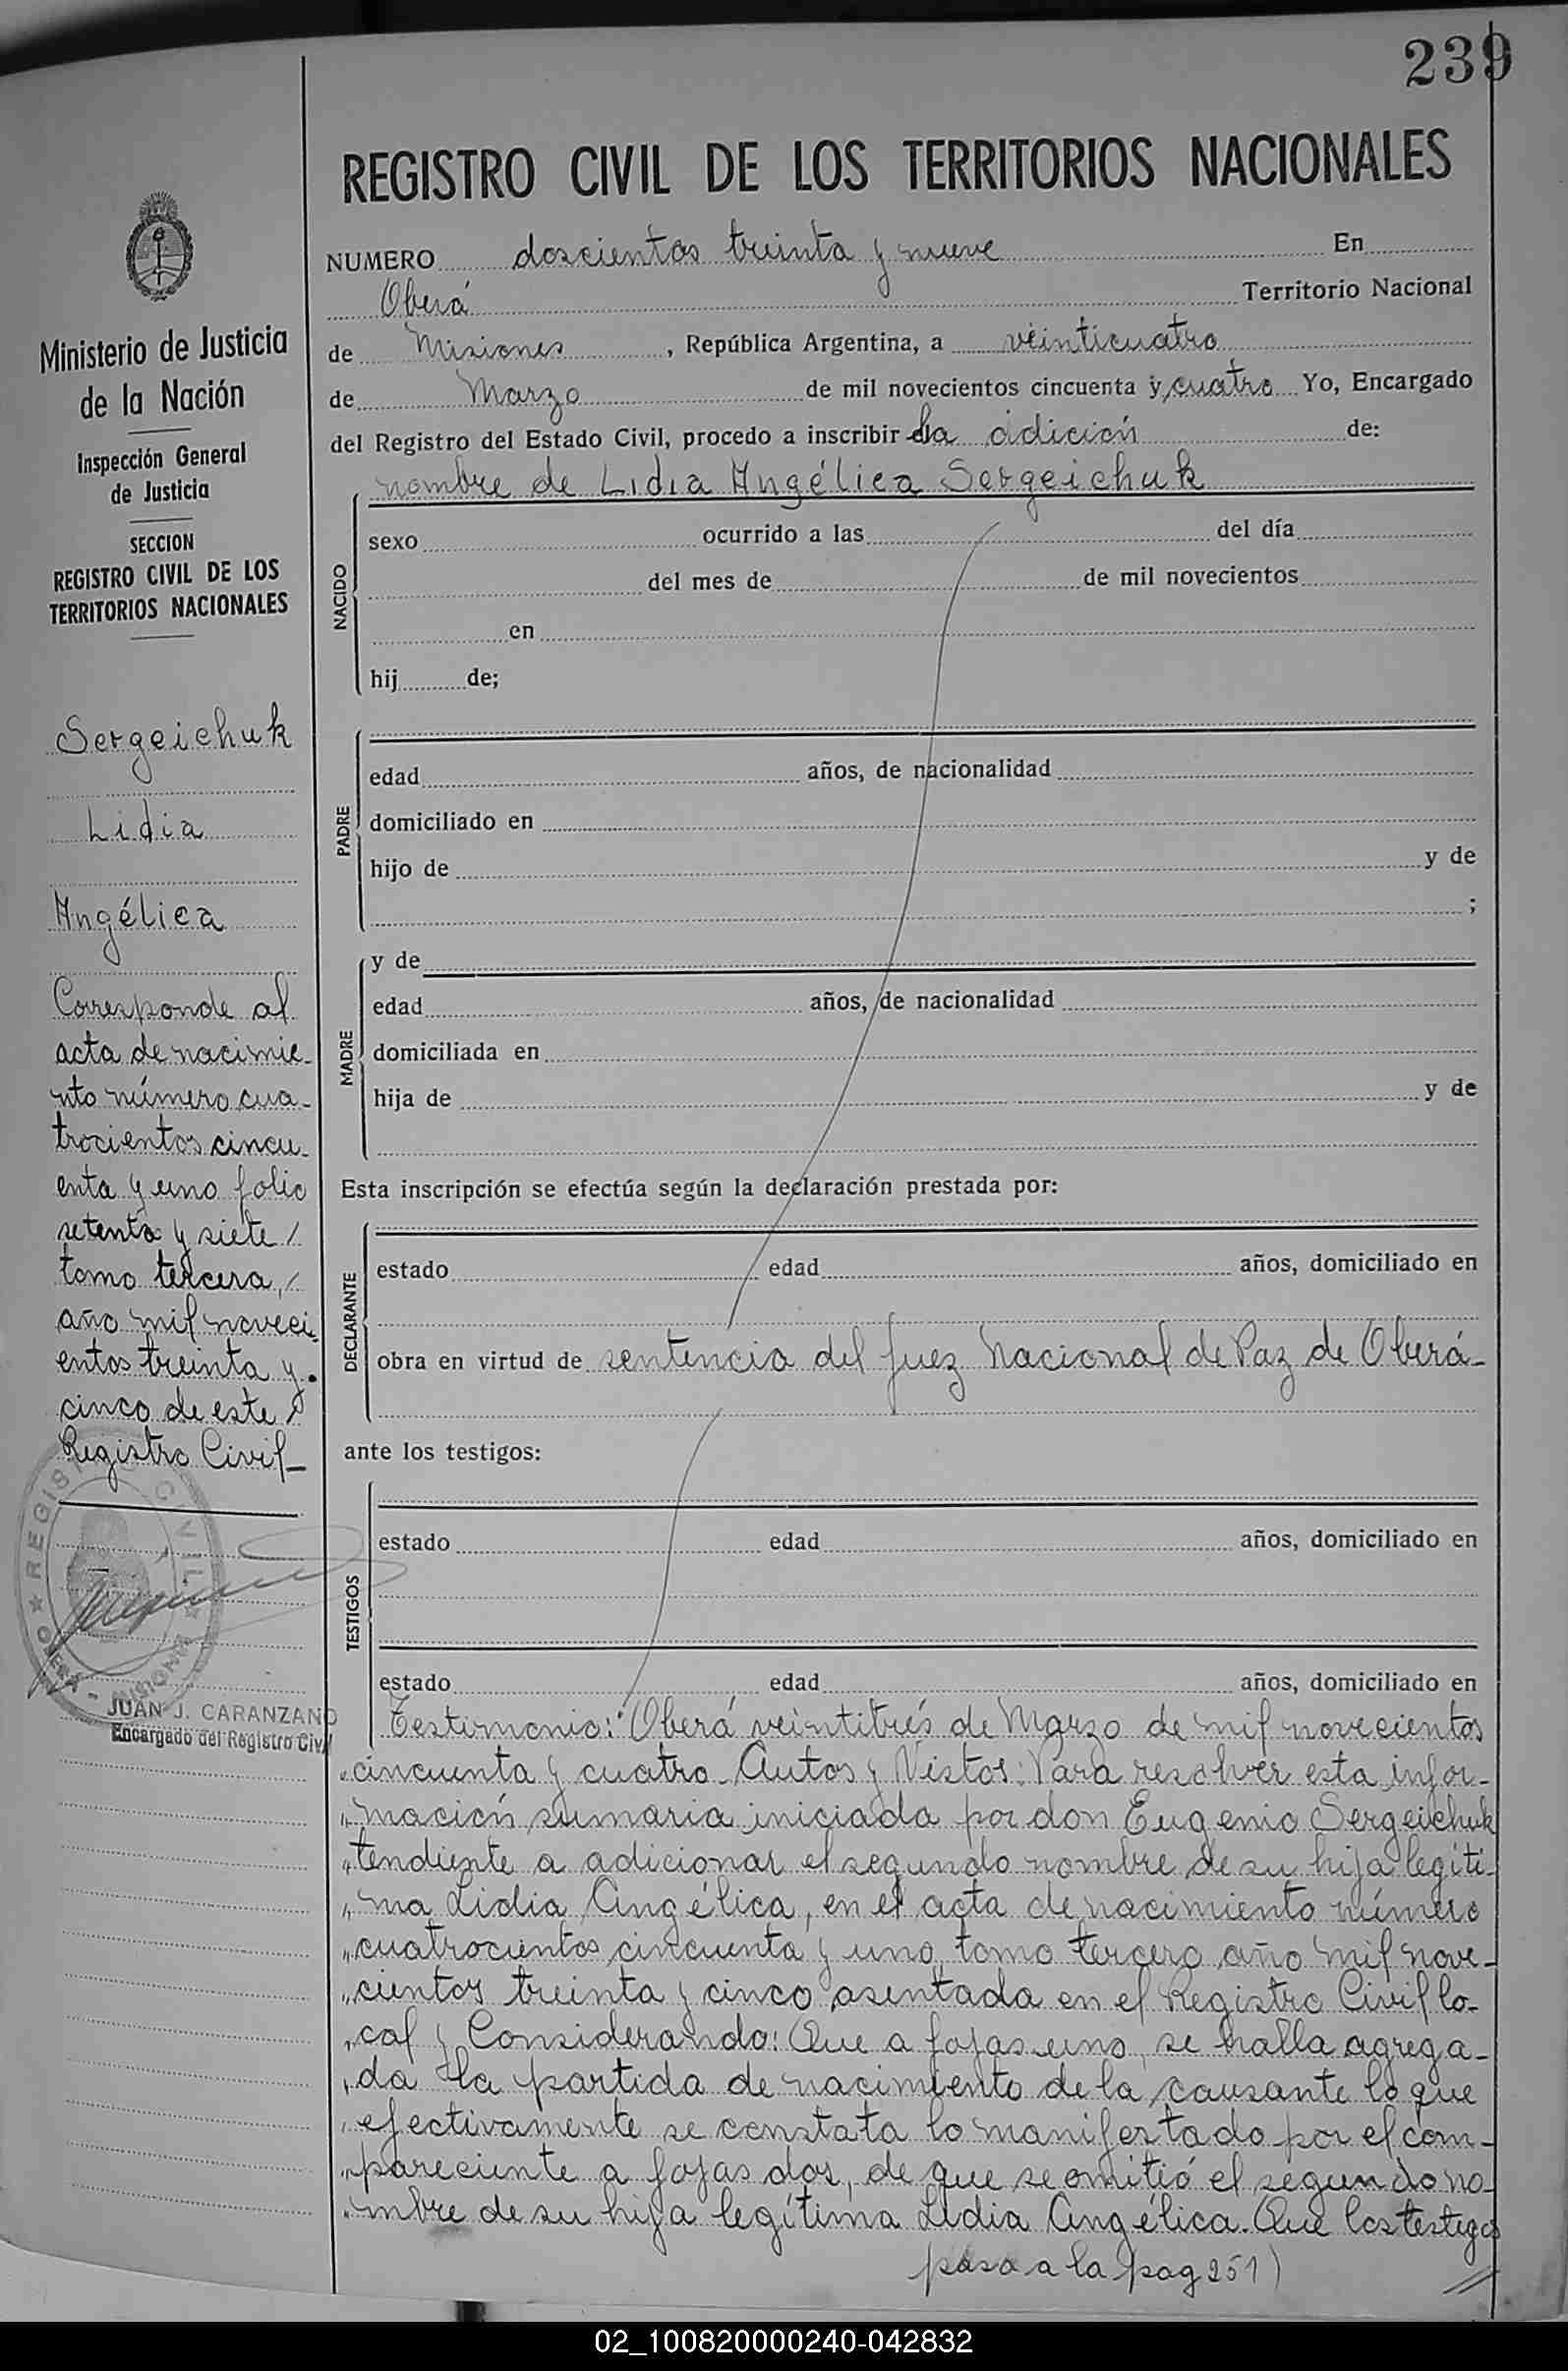 239
REGISTRO CIVIL DE LOS TERRITORIOS NACIONALES
NUMERO doscientos treinta y nueve En
Oberá Territorio Nacional
de Misiones, República Argentina, a veinticuatro
de Marzo de mil novecientos cincuenta y cuatro Yo, Encargado
del Registro del Estado Civil, procedo a inscribir la adición de:
nombre de Lidia Angélica Sergeichuk
NACIDO
sexo ocurrido a las del día
del mes de de mil novecientos
en
hij de;
PADRE
edad años, de nacionalidad
domiciliado en
hijo de y de
;
MADRE
y de
edad años, de nacionalidad
domiciliada en
hija de y de
Esta inscripción se efectúa según la declaración prestada por:
DECLARANTE
estado edad años, domiciliado en
obra en virtud de sentencia del Juez Nacional de Paz de Oberá-
ante los testigos:
TESTIGOS
estado edad años, domiciliado en
estado edad años, domiciliado en
Testimonio: "Oberá veintitrés de Marzo de mil novecientos
"cincuenta y cuatro- Autos y Vistos: Para resolver esta infor-
"mación sumaria iniciada por don Eugenio Sergeichuk
"tendiente a adicionar el segundo nombre de su hija legíti-
"ma Lidia Angélica, en el acta de nacimiento número
"cuatrocientos cincuenta y uno, tomo tercero año mil nove-
"cientos treinta y cinco asentada en el Registro Civil lo-
"cal y Considerando: Que a fojas uno, se halla agrega-
"da la partida de nacimiento de la causante lo que
"efectivamente se constata lo manifestado por el com-
"pareciente a fojas dos, de que se omitió el segundo no-
"mbre de su hija legítima Lidia Angélica. Que los testigos
pasa a la pag 251)
Ministerio de Justicia
de la Nación
Inspección General
de Justicia
SECCION
REGISTRO CIVIL DE LOS
TERRITORIOS NACIONALES
Sergeichuk
Lidia
Angélica
Corresponde al
acta de nacimie-
nto número cua-
trocientos cincu-
enta y uno folio
setenta y siete/
tomo tercera,/
año mil noveci-
entos treinta y
cinco de este/
Registro Civil-
REGISTRO CIVIL
OBERA - MISIONES
JUAN J. CARANZANO
Encargado del Registro Civil
02_100820000240-042832